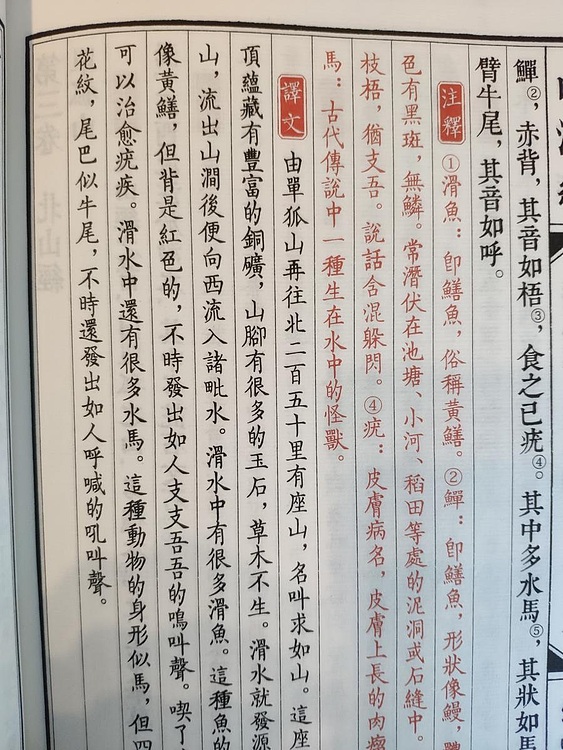 鱓②，赤背，其音如梧③，食之已疣④。其中多水馬⑤，其狀如馬
臂牛尾，其音如呼。
注釋 ①滑魚：即鱔魚，俗稱黃鱔。②鱓：即鱔魚，形狀像鰻，
色有黑斑，無鱗。常潛伏在池塘、小河、稻田等處的泥洞或石縫中。
枝梧，猶支吾。說話含混躲閃。④疣：皮膚病名，皮膚上長的肉瘤
馬：古代傳說中一種生在水中的怪獸。
譯文 由單狐山再往北二百五十里有座山，名叫求如山。這座
頂蘊藏有豐富的銅礦，山腳有很多的玉石，草木不生。滑水就發源
山，流出山澗後便向西流入諸毗水。滑水中有很多滑魚。這種魚的
像黃鱔，但背是紅色的，不時發出如人支支吾吾的鳴叫聲。喫了
可以治愈疣疾。滑水中還有很多水馬。這種動物的身形似馬，但四
花紋，尾巴似牛尾，不時還發出如人呼喊的吼叫聲。